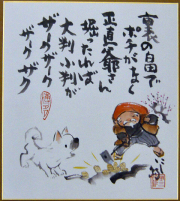 裏の畠で
ポチがなく
正直爺さん
掘ったれば
大判小判が
ザークザーク
ザクザク